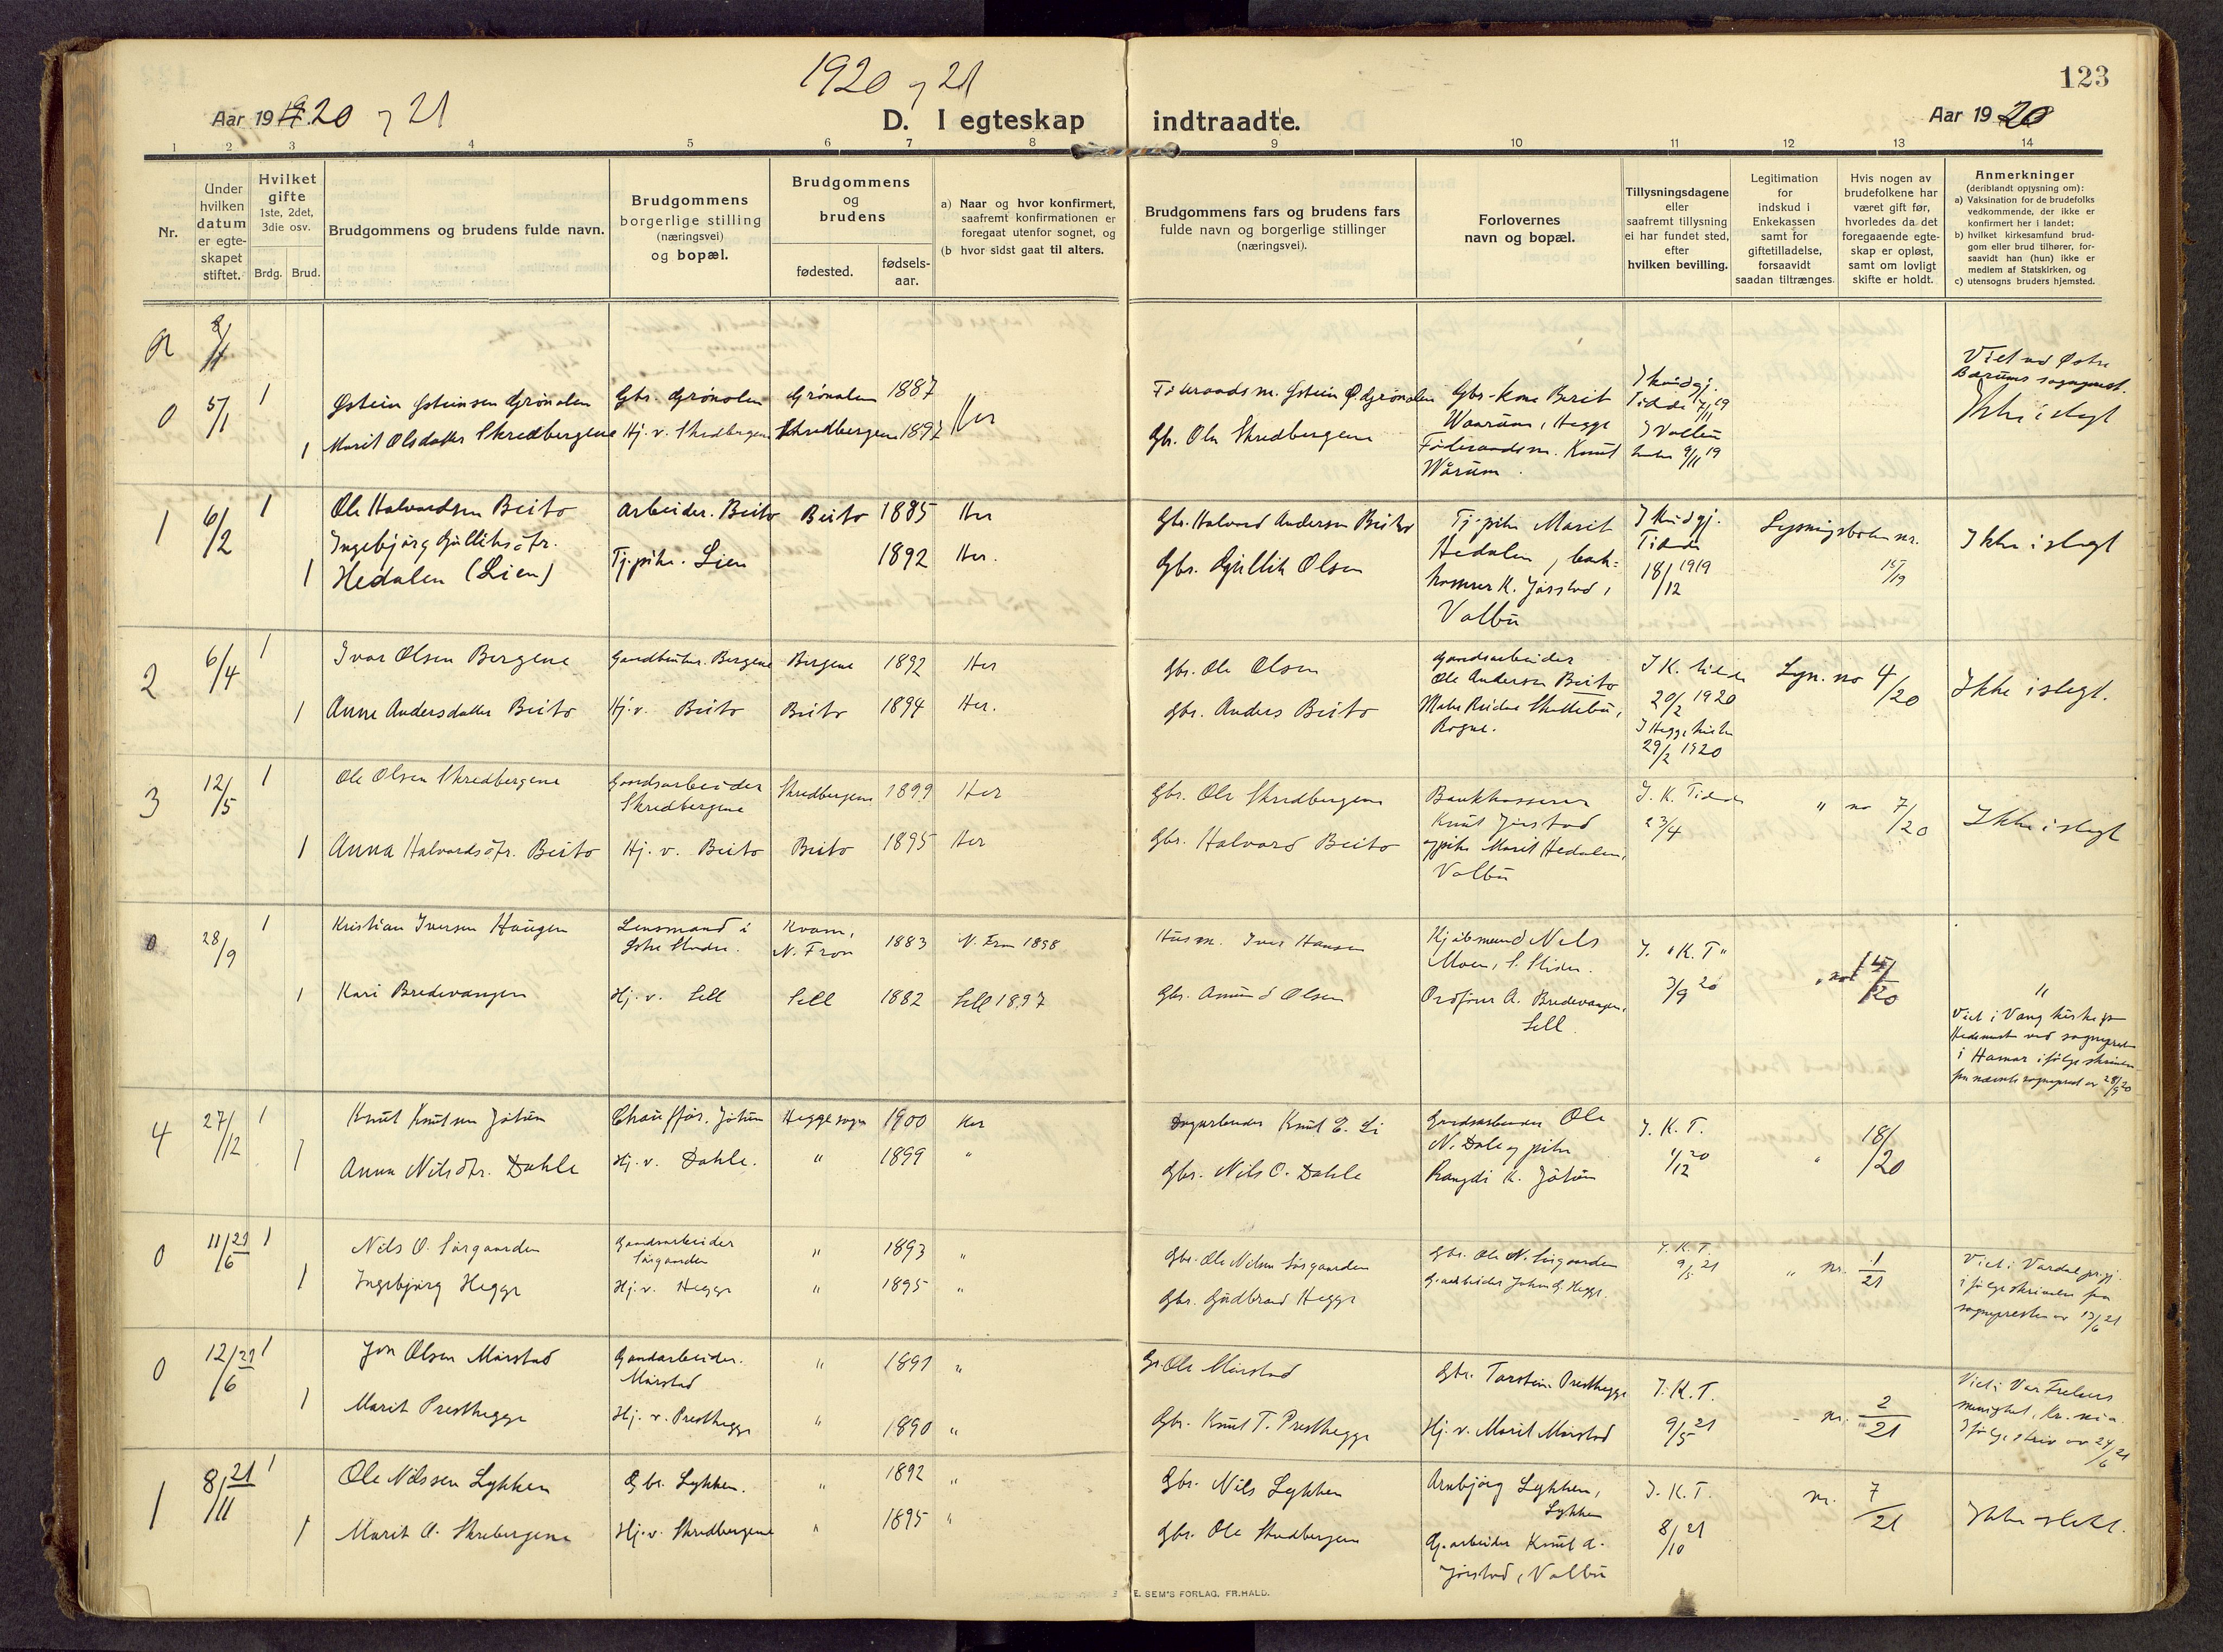 1920 og 21
123
Aar 1920 og 21
D. I egteskap indtraadte.
Aar 1920
1 2 3 4 5 6 7 8 9 10 11 12 13 14
Nr.
Under
hvilken
datum
er egte-
skapet
stiftet.
Hvilket
gifte
1ste, 2det,
3die osv.
Brdg. Brud.
Brudgommens og brudens fulde navn.
Brudgommens
borgerlige stilling
(næringsvei)
og bopæl.
Brudgommens
og
brudens
fødested.
fødsels-
aar.
a) Naar og hvor konfirmert,
saafremt konfirmationen er
foregaat utenfor sognet, og
(b hvor sidst gaat til alters.
Brudgommens fars og brudens fars
fulde navn og borgerlige stillinger
(næringsvei).
Forlovernes
navn og bopæl.
Tillysningsdagene
eller
saafremt tillysning
ei har fundet sted,
efter
hvilken bevilling.
Legitimation
for
indskud i
Enkekassen
samt for
giftetilladelse,
forsaavidt
saadan tiltrænges.
Hvis nogen av
brudefolkene har
været gift før,
hvorledes da det
foregaaende egte-
skap er opløst,
samt om lovligt
skifte er holdt.
Anmerkninger
(deriblandt oplysning om):
a) Vaksination for de brudefolks
vedkommende, der ikke er
konfirmert her i landet;
b) hvilket kirkesamfund brud-
gom eller brud tilhører, for-
saavidt han (hun) ikke er
medlem af Statskirken, og
c) utensogns bruders hjemsted.
0 5/1 1 Østein Østeinsen Grønolen Gbr. Grønolen Grønolen 1887 Her
1 Marit Olsdatter Skredbergene Hj. v. Skredbergene Skredbergene 1897
Føderaadsm. Østein Ø. Grønolen
Gbr. Ole Skredbergene
Gbr-kone Berit
Waarum, Hegge
Føderaadsm. Knut
Wårum.
I Kundgj.
Tidende 7/11 19
I Volbu
kirke 9/11 19
Viet ved Østre
Bærums sogneprest.
Ikke i slegt
1 6/2 1 Ole Halvordsen Beito Arbeider. Beito Beito 1885 Her
Ingebjørg Gulliksdtr.
1 Hedalen (Lien) Tj.pike. Lien 1892 Her.
Gbr. Halvord Andersen Beito
Gbr. Gullik Olsen
Tj.pike Marit
Hedalen, bank-
kasserer K. Jørstad,
Volbu
I Kundgj.
Tidende
18/12 1919
Lysningsboken nr.
15/19
Ikke i slegt
2 6/4 1 Ivar Olsen Bergene Gaardbruker. Bergene Bergene 1892 Her
1 Anne Andersdatter Beito Hj. v. Beito Beito 1894 Her.
Gbr. Ole Olsen
Gbr. Anders Beito
Gaardsarbeider
Ole Andersen Beito
Rogne.
I K. tidende
20/2 1920
I Hegge kirke
29/2 1920
Lysn. no 4/20
Ikke i slegt.
3 12/5 1 Ole Olsen Skredbergene Gaardsarbeider Skredbergene 1899 Her
Skredbergene
1 Anna Halvordsdtr. Beito Hj. v. Beito Beito 1895 Her
Gbr. Ole Skredbergene
Gbr. Halvord Beito
Bankkasserer
Knut Jørstad
og pike Marit Hedalen,
Volbu
I. K. Tidende
23/4
" no 7/20
Ikke i slegt
0 28/9 1 Kristian Iversen Haugen Lensmand i Kvam, 1883 N. Fron 1898
Østre Slidre. N. Fron
1 Kari Bredevangen Hj. v. Sell Sell 1882 Sell 1897
Husm. Iver Hansen
Gbr. Amund Olsen
Kjøbmand Nils
Moen, V. Slidre.
Ordfører A. Bredevangen,
Sell.
I. "K. T"
3/9 20
15/20
"
Viet i Vang kirke på
Hedemark ved sogneprest
i Hamar ifølge skrivelse
fra nævnte sogneprest av 28/9 20
4 27/12 1 Knut Knutsen Jøtun Chauffør. Jøtun Heggesogn 1900 Her
1 Anna Nilsdtr. Dahle Hj. v. Dahle. " 1899 "
Dagarbeider Knut E. Li
Gbr. Nils O. Dahle
Gaardsarbeider Ole
N. Dale og pike
Rangdi K. Jøtun
I. K. T.
4/12 20
" 18/20
0 11/6 21 1 Nils O. Sørgaarden Gaardsarbeider " 1893 "
Sørgaarden
1 Ingebjørg Hegge Hj. v. Hegge " 1895 "
Gbr. Ole Nilsen Sørgaarden
Gbr. Gudbrand Hegge
Gbr. Ole N. Sørgaarden
G.arbeider John G. Hegge.
I. K. T.
9/5 21
" nr. 1/21
Viet i Vardal prgj.
ifølge skrivelse fra
sognepresten av 13/6 21
0 12/6 21 1 Jon Olsen Mørstad Gaardarbeider. " 1891 "
Mørstad
1 Marit Presthegge Hj. v. Presthegge " 1890 "
Gbr. Ole Mørstad
Gbr. Knut T. Presthegge
Gbr. Torstein Presthegge
Hj. v. Marit Mørstad
I. K. T.
9/5 21
" nr. 2/21
Viet i Vår Frelsers
menighet, Kr.nia.
Ifølge skriv av 24/6 21
1 8/11 21 1 Ole Nilssen Lykken Gbr. Lykken. " 1892 "
1 Marit O. Skrebergene Hj. v. Skredbergene " 1895 "
Gbr. Nils Lykken
Gbr. Ole Skredbergene
Arnbjørg Lykken,
Lykken
G.arbeider Knut A.
Jørstad, Volbu
I. K. T.
8/10 21
nr. 7/21
Ikke slekt.
E. SEM'S FORLAG, FR.HALD.